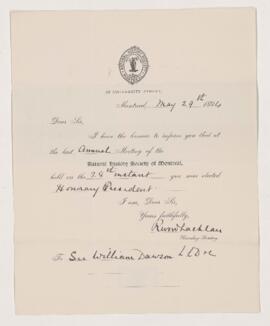 UNIVERSITY STREET,
Montreal, May 29th 1884
Dear Sir,
I have the honour to inform you that at
the last Annual Meeting of the
Natural History Society of Montreal,
held on the 28th instant you were elected
Honorary President.
I am, Dear Sir,
Yours faithfully,
Recording Secretary
To Sir William Dawson LLD